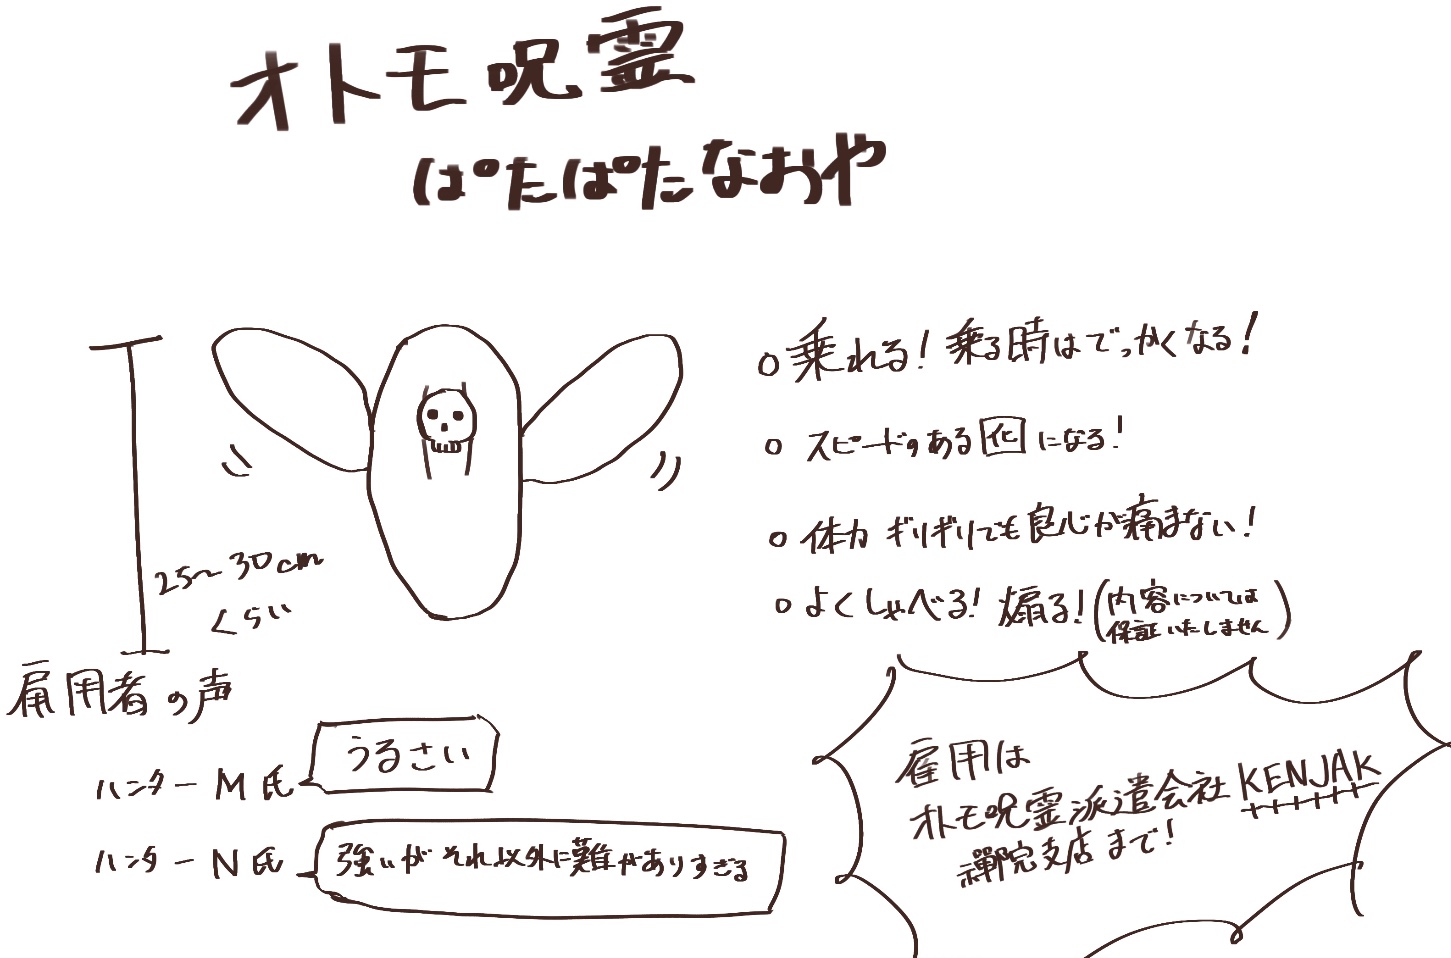 オトモ呪霊
ぱたぱたなおや
○乗れる!乗る時はでっかくなる!
○スピードのある囮になる!
○体力ギリギリでも良心が痛まない!
○よくしゃべる!煽る!(内容については
保証いたしません)
25〜30cm
くらい
雇用者の声
ハンターM氏
うるさい
ハンターN氏
強いがそれ以外に難がありすぎる
雇用は
オトモ呪霊派遣会社KENJAK
禪院支店まで!